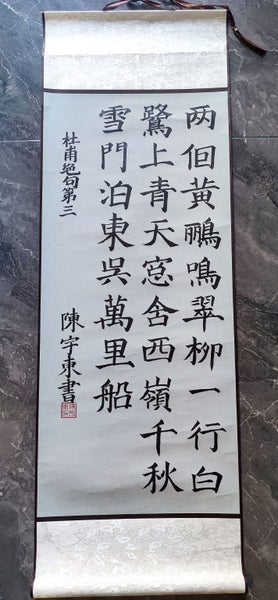 两個黃鸝鳴翠柳一行白
鷺上青天窓含西嶺千秋
雪門泊東吳萬里船
杜甫絶句第三
陳宇東書